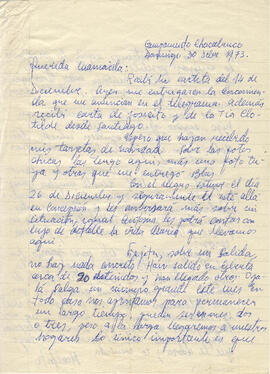 Campamento Chacabuco
Domingo 30 Dbre 1973.
Querida Mamacita:
Recibí tu cartita del 14 de
Diciembre. Ayer me entregaron la encomien-
da que me anuncian en el telegrama. Además
recibí carta de Josesito y de la Tía Clo-
tilde desde Santiago.
Espero que hayan recibido
mis tarjetas de navidad. Sobre las fotos
chicas las tengo aquí más una foto tu-
ya y otras que me entregó
Con el negro estuve el día
26 de Diciembre y seguramente él está allá
en Concepción y les más sobre mi
situación, igual Antonio les podrá contar con
lujo de detalle la vida diaria que llevamos
aquí.
sobre mi salida,
no hay nada concreto! Han salido en libertad
cerca de 20 detenidos y han llegado otros. Ojalá
salga un número grande este mes en
todo caso nos aprontamos para permanecer
un largo tiempo, pueden ser meses, dos
o tres, pero a la larga llegaremos a nuestros
hogares. Lo único importante es que